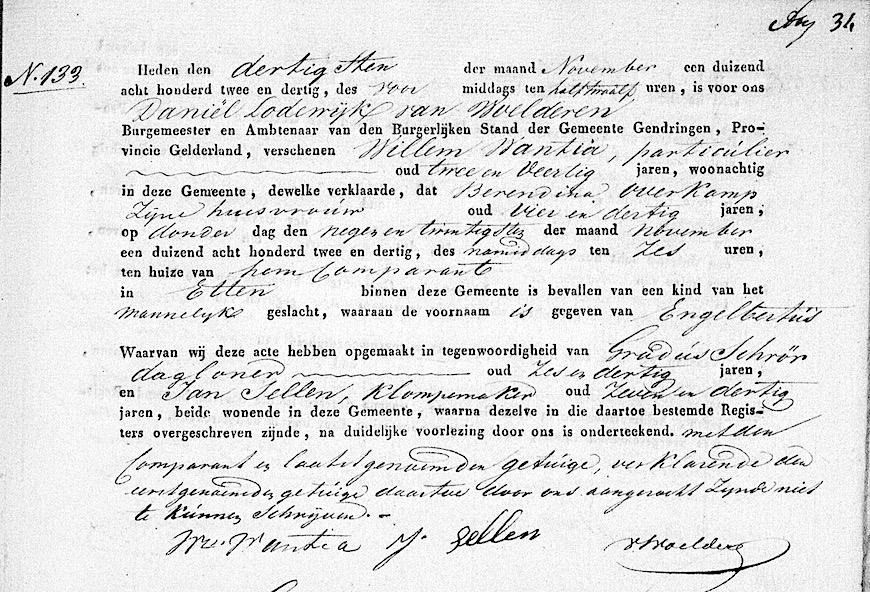 34
N. 133.
Heden den dertigsten der maand November een duizend
acht honderd twee en dertig, des voor middags ten half twalf uren, is voor ons
Daniël Lodewijk van Woelderen
Burgemeester en Ambtenaar van den Burgerlijken Stand der Gemeente Gendringen, Pro-
vincie Gelderland, verschenen Willem Wantia, particúlier
oud twee en Veertig jaren, woonachtig
in deze Gemeente, dewelke verklaarde, dat Berendina Overkamp
Zijne huisvrouw oud Vier en dertig jaren;
op donder dag den negen en twintigsten der maand November
een duizend acht honderd twee en dertig, des namiddags ten Zes uren,
ten huize van hem Comparant
in Etten binnen deze Gemeente is bevallen van een kind van het
mannelijk geslacht, waaraan de voornaam is gegeven van Engelbertús
Waarvan wij deze acte hebben opgemaakt in tegenwoordigheid van Gradús Schrör
dagloner oud Zes en dertig jaren,
en Jan Sellen, Klompemaker oud Zeven en dertig
jaren, beide wonende in deze Gemeente, waarna dezelve in die daartoe bestemde Regis-
ters overgeschreven zijnde, na duidelijke voorlezing door ons is onderteekend. met den
Comparant en laatstgenoemden getuige, verklarende den
eerstgenoemden getuige daartoe door ons aangezocht Zijnde niet
te kúnnen Schrijven.-
Wm. Wantia J. Sellen vWoelderen